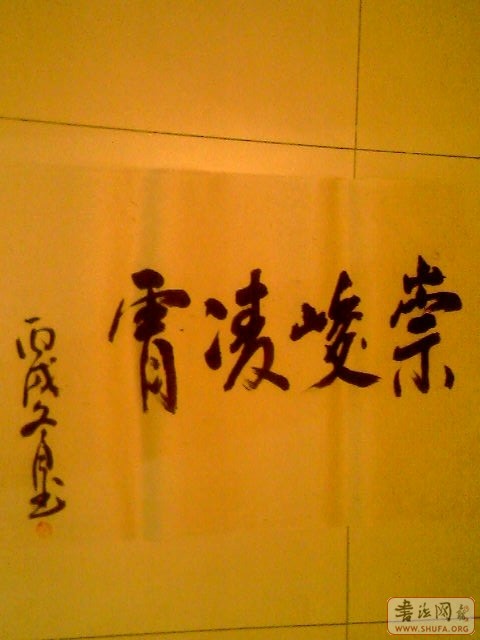 崇峻凌霄
丙戌冬
書法网
WWW.SHUFA.ORG